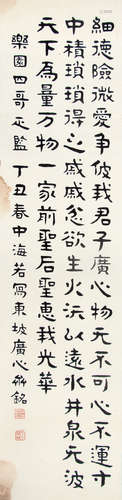 細德險微愛爭彼我君子廣心物无不可心不運寸
中積瑣瑣得之戚戚忿欲生火沃以遠水井泉无波
天下為量萬物一家前聖后聖惠我光華
樂園四哥正監 丁丑春中海若寫東坡廣心齋銘